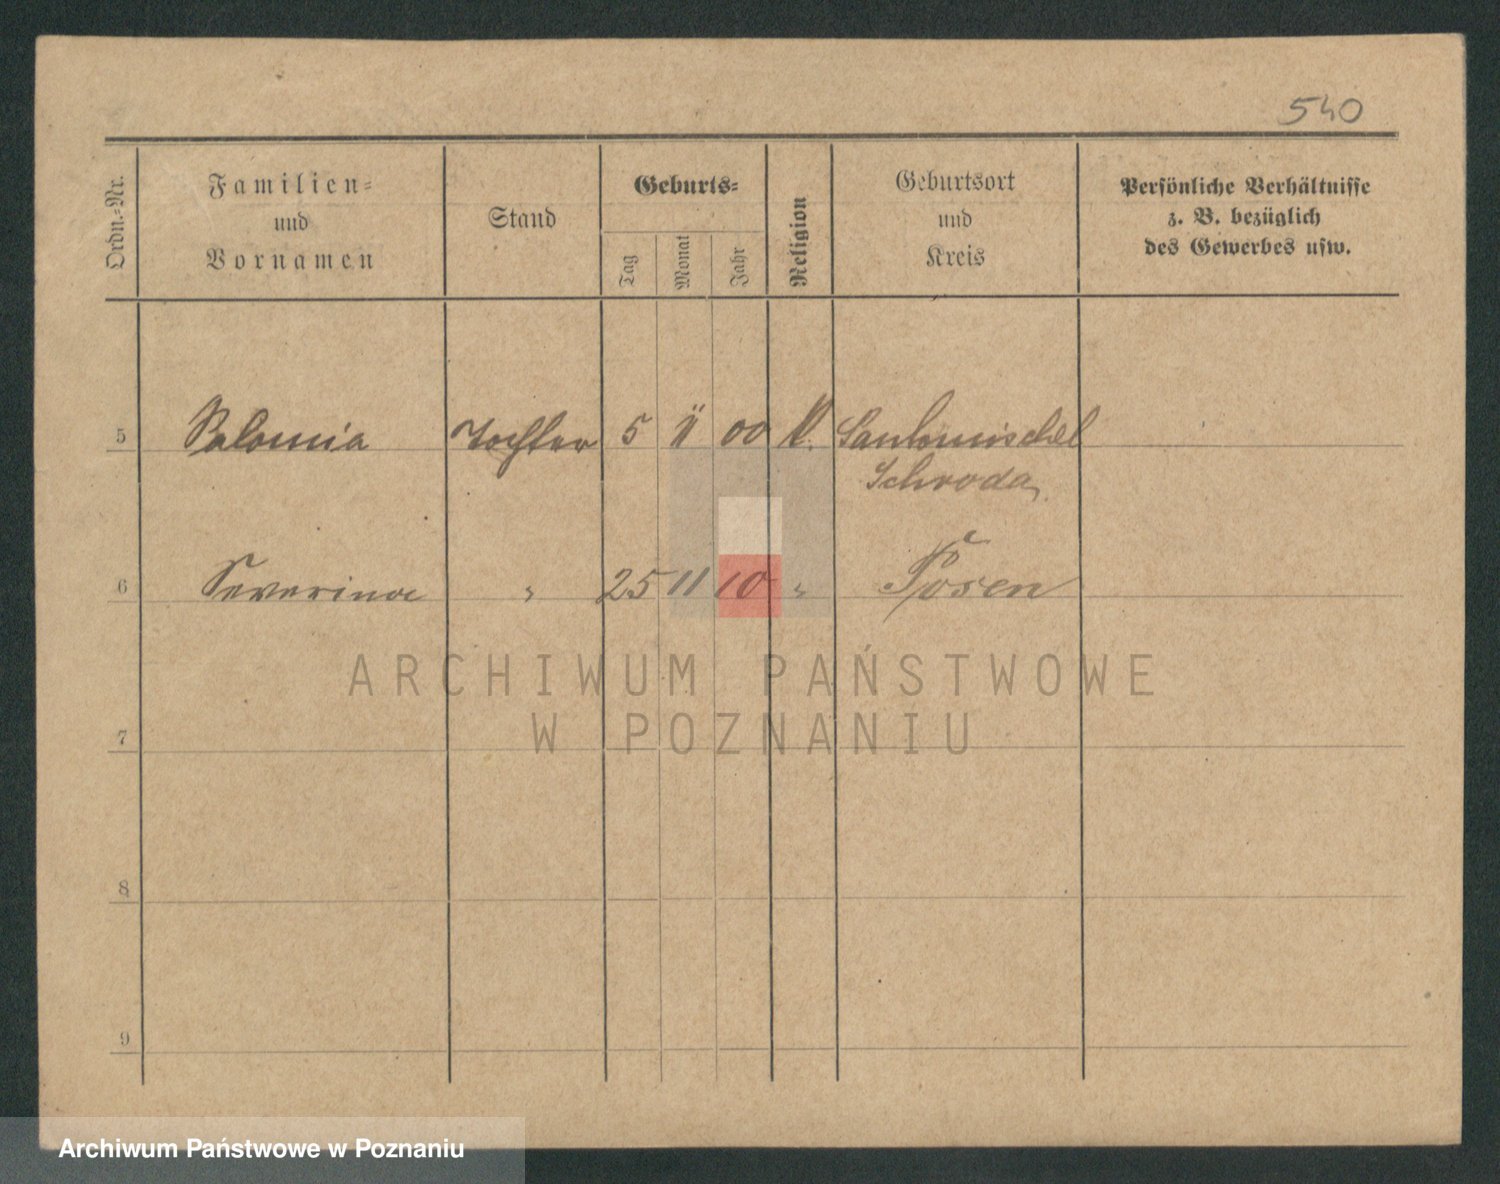 540
Ordn.-Nr.
Familien-
und
Vornamen
Stand
Geburts-
Tag
Monat
Jahr
Religion
Geburtsort
und
Kreis
Persönliche Verhältnisse
z. B. bezüglich
des Gewerbes usw.
5 Salomia Tochter 5 11 00 K. Santomischel
Schroda
6 Severina " 25 11 10 " Posen
7
8
9
ARCHIWUM PAŃSTWOWE
W POZNANIU
Archiwum Państwowe w Poznaniu